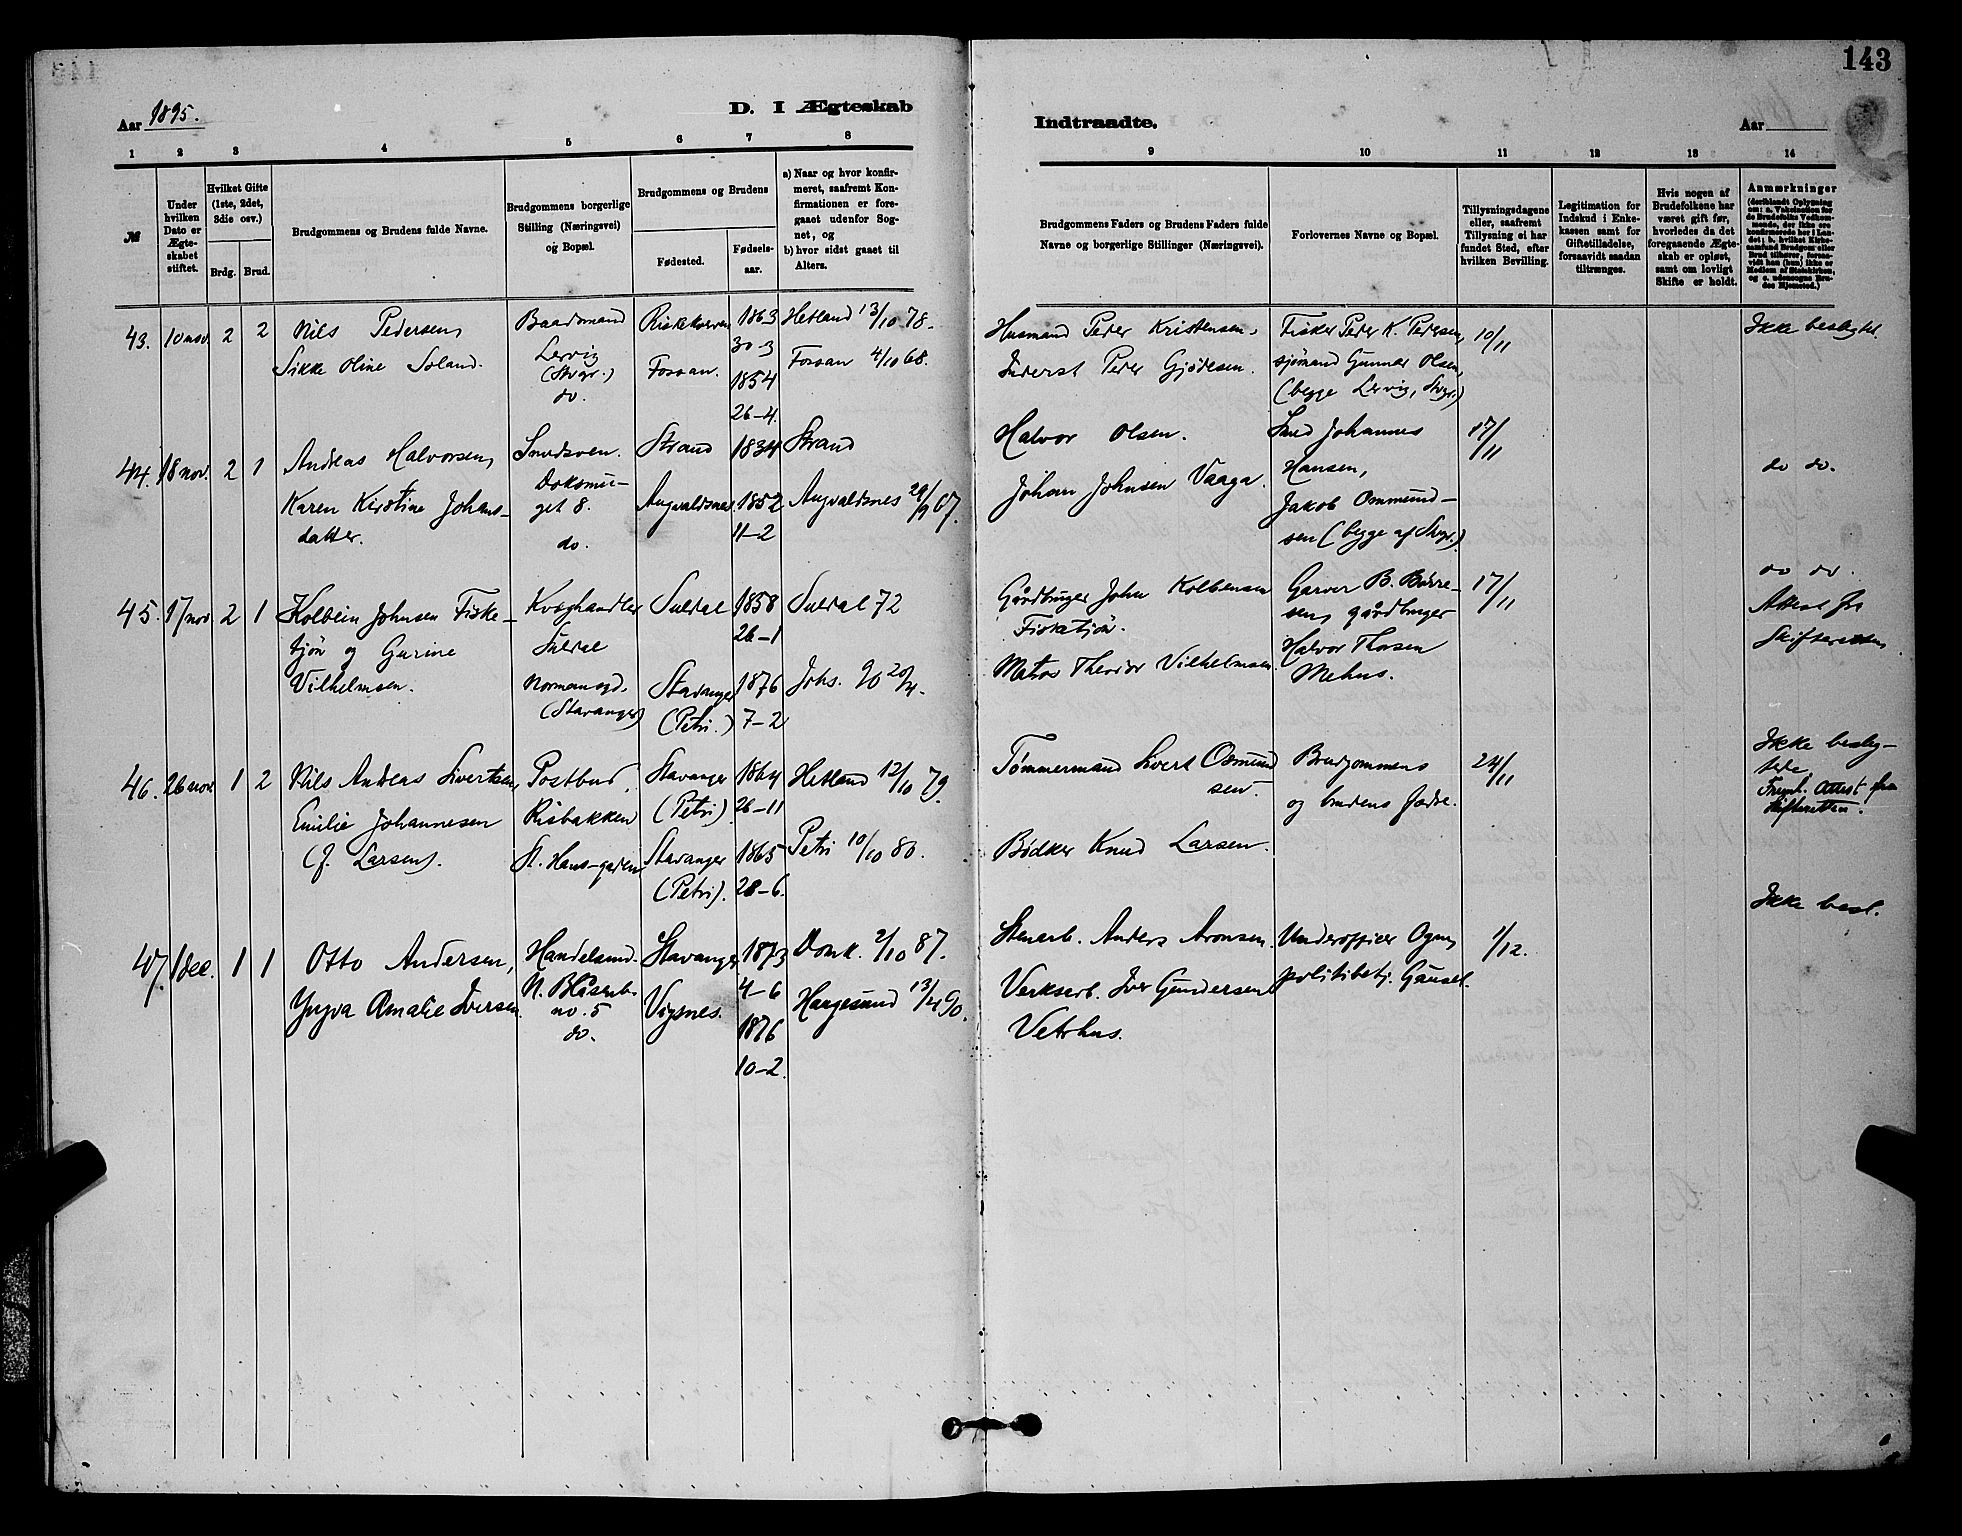 143
Aar 1895.
D. I Ægteskab
Indtraadte.
Aar
1 2 3 4 5 6 7 8 9 10 11 12 13 14
№
Under hvilken Dato er Ægteskabet stiftet.
Hvilket Gifte (1ste, 2det, 3die osv.)
Brdg. Brud.
Brudgommens og Brudens fulde Navne.
Brudgommens borgerlige Stilling (Næringsvei) og Bopæl.
Brudgommens og Brudens
Fødested.
Fødsels-aar.
a) Naar og hvor konfirmeret, saafremt Konfirmationen er foregaaet udenfor Sognet, og
b) hvor sidst gaaet til Alters.
Brudgommens Faders og Brudens Faders fulde Navne og borgerlige Stillinger (Næringsvei).
Forlovernes Navne og Bopæl.
Tillysningsdagene eller, saafremt Tillysning ei har fundet Sted, efter hvilken Bevilling.
Legitimation for Indskud i Enkekassen samt for Giftetilladelse, forsaavidt saadan tiltrænges.
Hvis nogen af Brudefolkene har været gift før, hvorledes da det foregaaende Ægteskab er opløst, samt om lovligt Skifte er holdt.
Anmærkninger
43. 10 nov. 2 2
Nils Pedersen,
Sikke Oline Soland.
Baadsmand
Lervig
(Stvgr.)
do.
Fossan.
1863
30-3
1854
26-4
Hetland 13/10 78.
Fossan 4/10 68.
Husmand Peder Kristensen.
Inderst Peder Gjødesen.
Fisker Peder K. Pedersen,
sjömand Gunner Olsen,
(begge Lervig, Stvgr.)
10/11
Ikke beslegtet.
44. 18 nov. 2 1
Andreas Halvorsen,
Karen Kirstine Johans-
datter.
Smedsven.
get 8.
do.
Strand
Augvaldsnes
1834
1852
11-2
Strand
Augvaldsnes 29/9 67.
Halvor Olsen.
Johan Johnsen Vaaga.
Smed Johannes
Hansen,
Jakob Ommund-
sen (begge af Stvgr.)
17/11
do do.
45. 17 nov 2 1
Kolbein Johnsen Fiske-
tjön og Gurine
Vilhelmsen.
Kvæghandler
Suldal
(Stavanger)
Suldal
Stavanger
(Petri.)
1858
26-1
1876
7-2
Suldal 72
Johs. 90 20/4.
Gårdbruger John Kolbensen
Fisketjön.
Matros Theodor Vilhelmsen
Garver B. Børre-
sen, gårdbruger
Halvor Thorsen
Mehus.
17/11
do do.
Attest fra
Skifteretten
46. 26 nov 1 2
Nils Andreas Sivertsen,
Emilie Johannesen
(f. Larsen).
Postbud,
Risbakken
St. Hans-gaden
Stavanger
(Petri)
Stavanger
(Petri).
1864
26-11
1865
28-6.
Hetland 12/10 79.
Petri 10/10 80.
Tømmermand Sivert Osmund
sen.
Bødker Knud Larsen.
Brudgommens
og brudens fædre.
24/11
Ikke besleg-
tede
Fremt. Attest fra
skifteretten.
47. 1 dec. 1 1
Otto Andersen,
Yngva Amalie Iversen
Handelsmd.
N. Blåsenb.
no. 5
do.
Stavanger
Vigsnes.
1873
4-6
1876
10-2.
Domk. 2/10 87.
Haugesund 13/4 90.
Stenarb. Anders Aronsen.
Verksarb. Iver Gundersen
Vetrhus.
Underofficer Ogne,
politibetj. Gausel.
1/12.
Ikke besl.